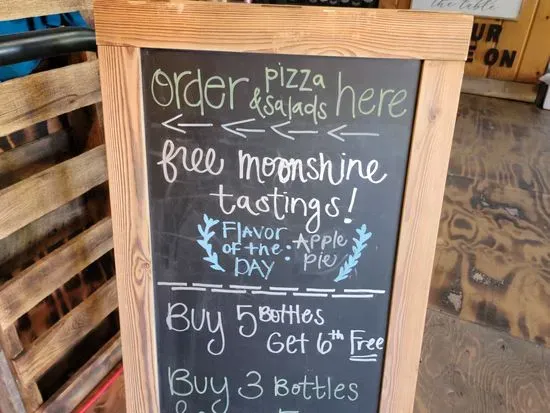 the table
UR
E ON
order pizza & salads here
free moonshine
tastings!
FLAVOR OF the DAY: Apple Pie
Buy 5 Bottles
Get 6th Free
Buy 3 Bottles